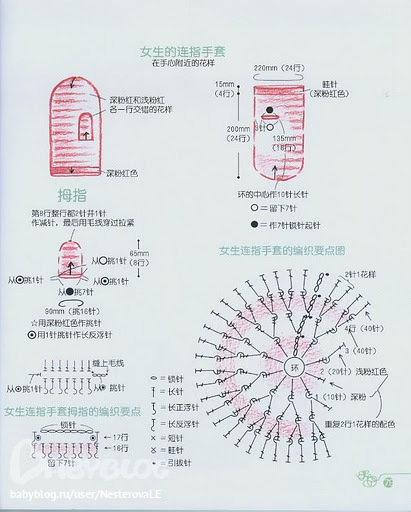 女生的连指手套
在手心附近的花样
深粉红和浅粉红
各一行交错的花样
深粉红色
220mm (24行)
15mm
(4行)
畦针
(深粉红色)
200mm
(24行)
135mm
(16行)
环的中心作10针长针
○=留下7针
●=作7针锁针起针
拇指
第8行整行都2针并1针
作减针，最后用毛线穿过拉紧
65mm
(8行)
从○挑1针
从◉挑1针
从◉挑1针
从●挑7针
90mm (挑16针)
☆用深粉红色作挑针
◉用1针挑针作长反浮针
缝上毛线
从◉挑1针
从● 挑针
女生连指手套拇指的编织要点
锁针
←17行
←16行
留下7针
=锁针
=长针
=长正浮针
=长反浮针
×=短针
=畦针
=引拔针
女生连指手套的编织要点图
2针1花样
4行 (40针)
3 (40针)
2 (20针) 浅粉红色
1 (10针) 深粉
环
重复2行1花样的配色
BABYBLOG
babyblog.ru/user/NesterovaLE